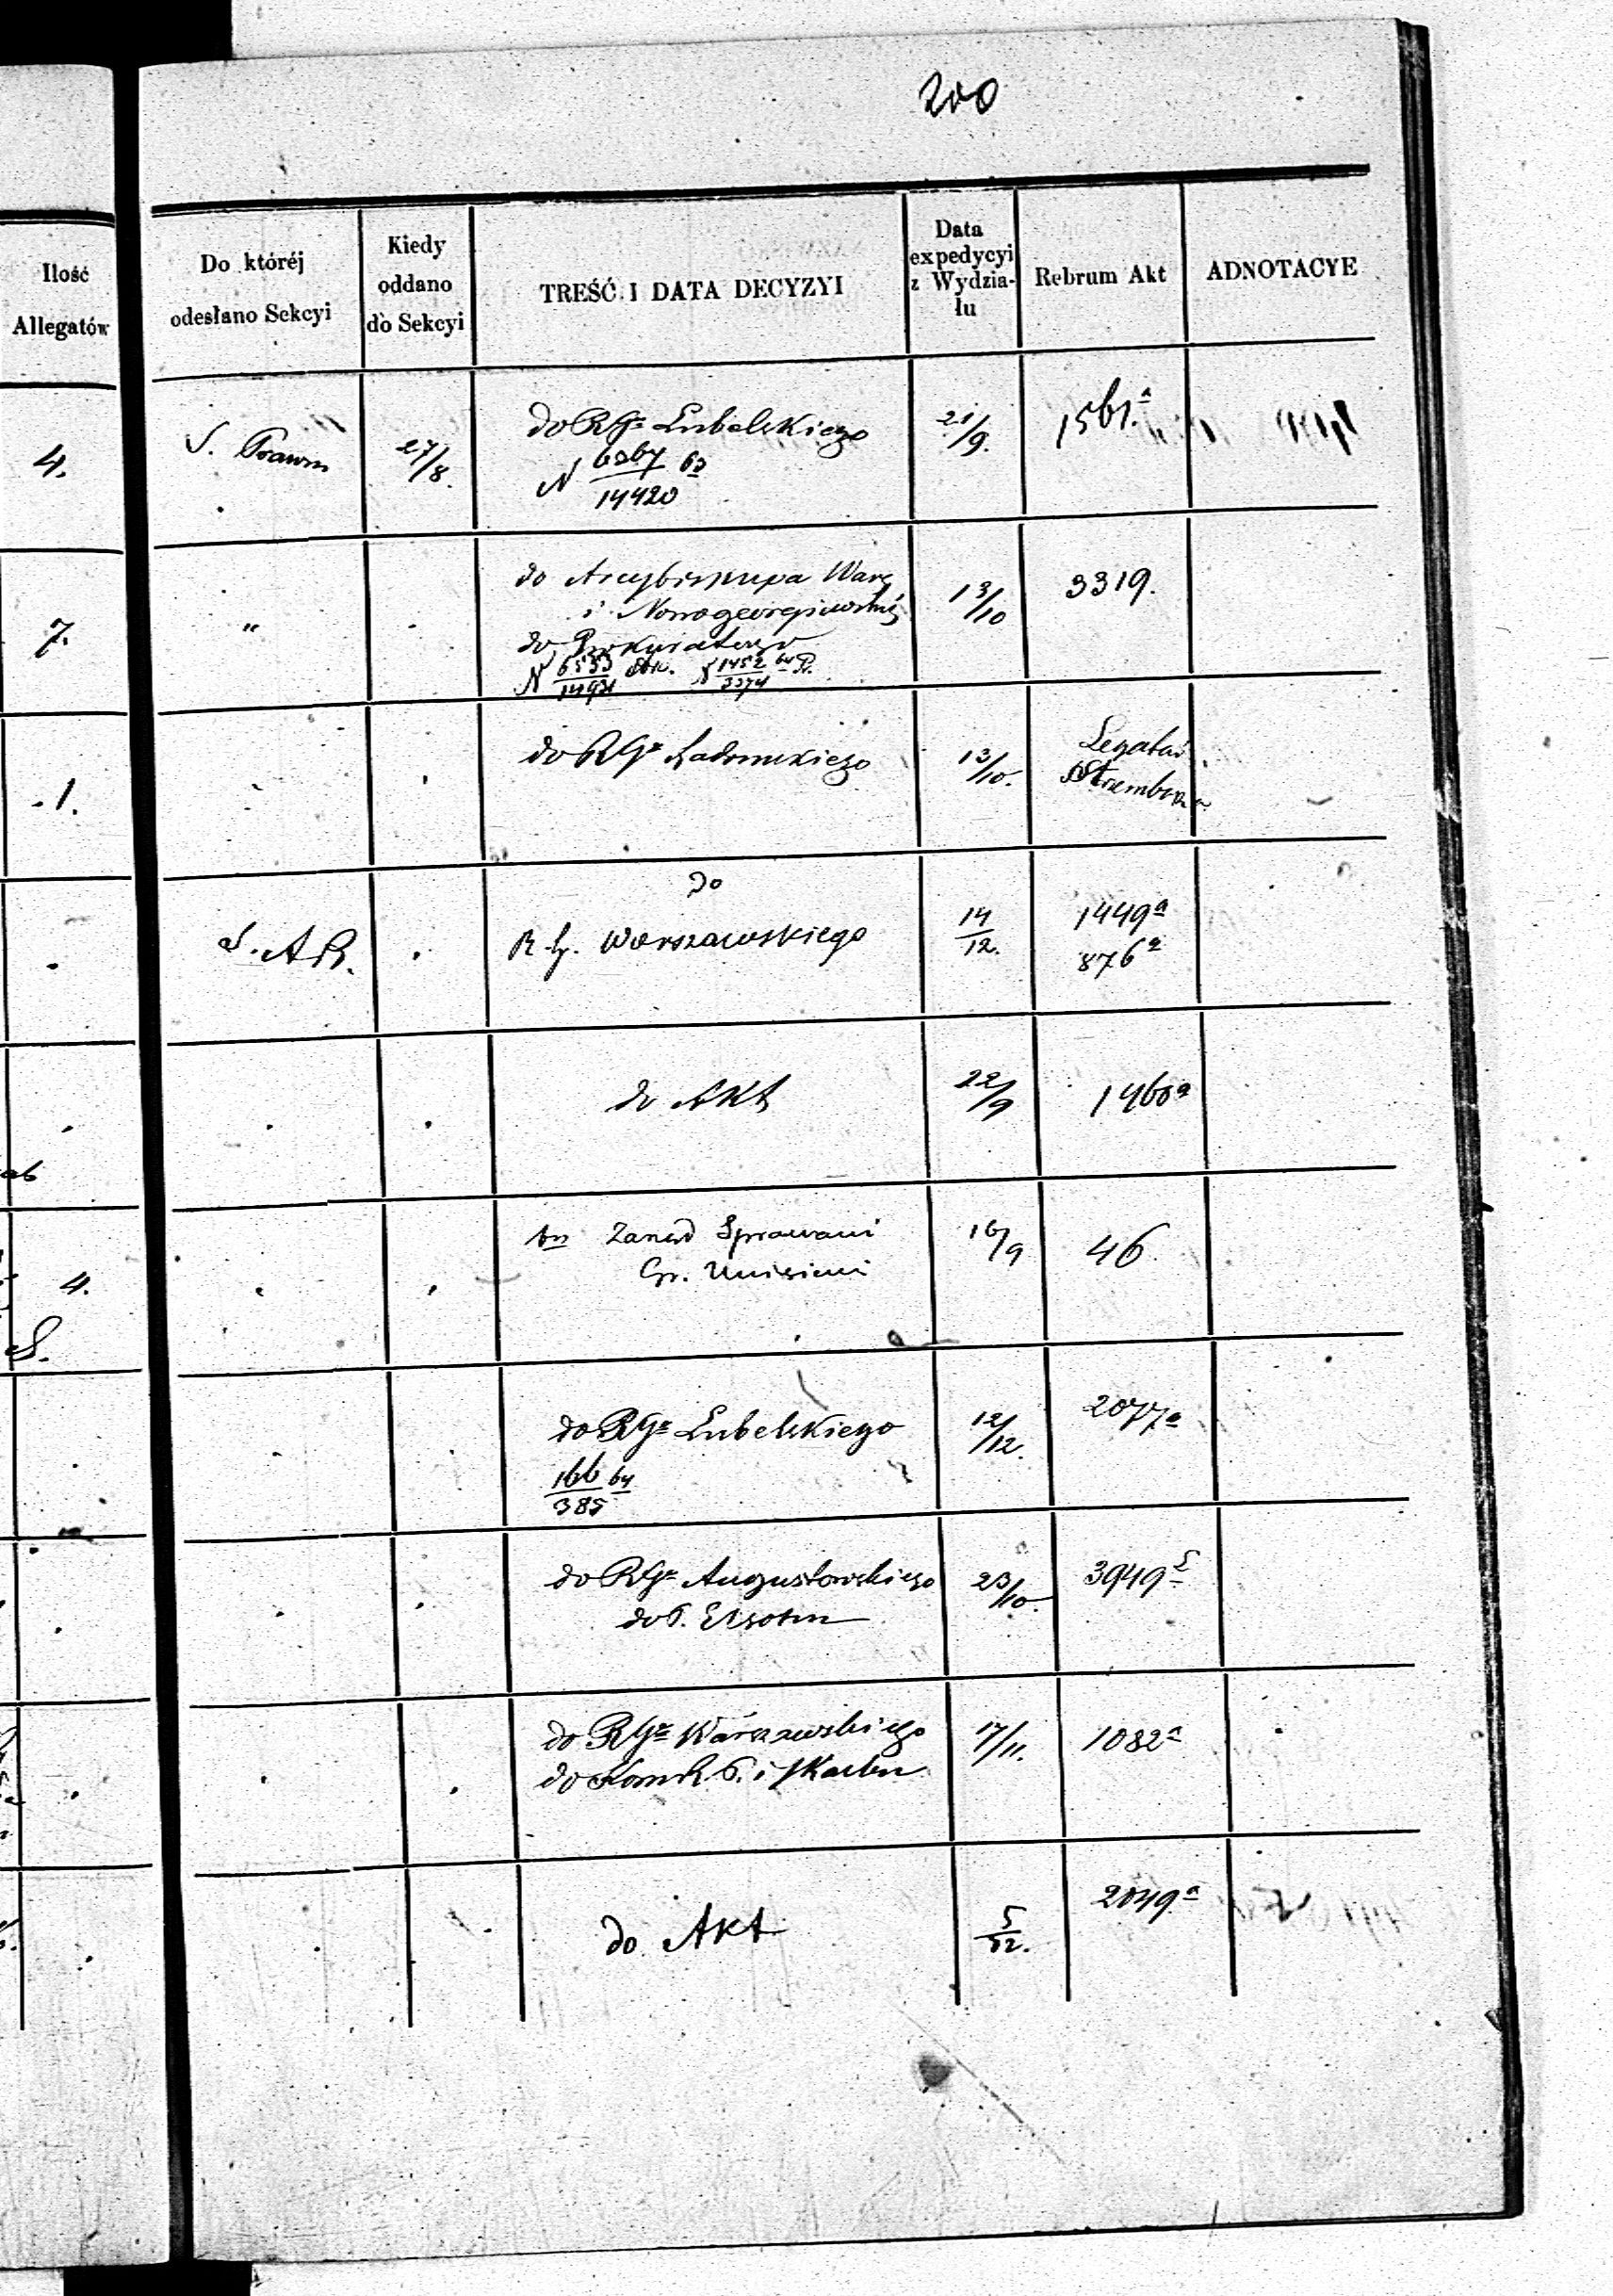 200
Ilość
Allegatów
Do któréj
odesłano Sekcyi
Kiedy
oddano
do Sekcyi
TREŚĆ I DATA DECYZYI
Data
expedycyi
z Wydzia-
łu
Rebrum Akt
ADNOTACYE
4.
S. Prawn
27/8.
do RGr Lubelskiego
N
14420
21/9.
1561.a
7.
"
do Arcybiskupa Warsz
i Nowogeorgiewskiego
do Prokuratora
N 6553 N 1452 64
13/10
3319.
1.
do RGr Radomskiego
13/10.
Legatu
4
S. AR.
do
R G. Warszawskiego
14/12.
1449a
876a
do Akt
22/9
1460a
4.
Zarząd Sprawami
Gr. Unickiemi
16/9
46
do RGr Lubelskiego
166 64
385
12/12.
2077a
do RGr Augustowskiego
do P.
23/10.
3949
do RGr Warszawskiego
do Kom R. P. i Skarbu
17/11.
1082a
do Akt
5/12.
2049a